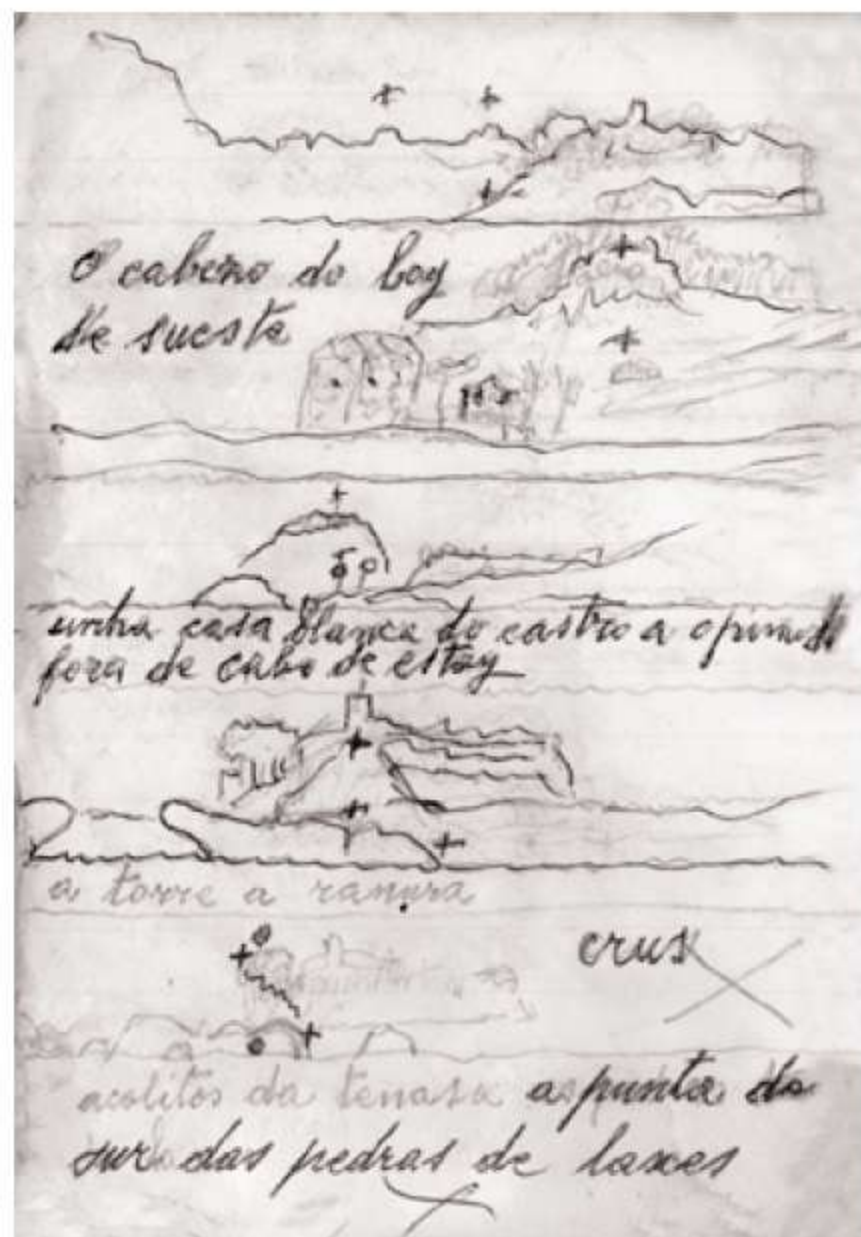 O cabezo do boy
de sueste
unha casa blanca do castro a
fora de cabo de estay
a torre a ranura
crus
acolitos da tenasa a punta do
sur das pedras de laxes